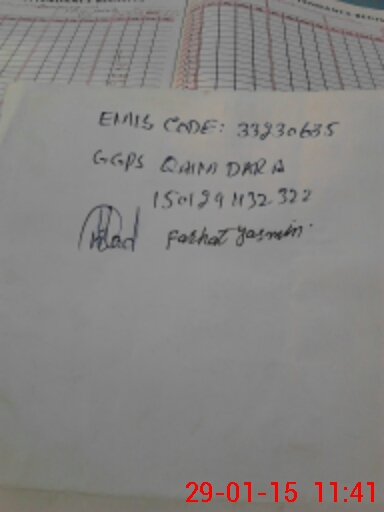 EMIS CODE: 33230635
GGPS QAIM DARA
1501291132322
Head Farhat Yasmin.
29-01-15 11:41